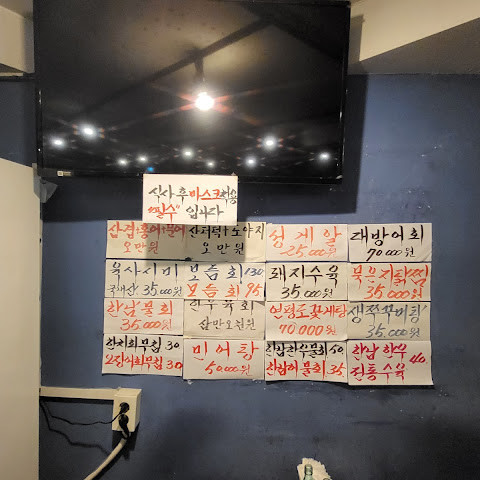 식사 후 마스크 착용
"필수" 입니다
삼겹+홍어+문어
오만원
산더덕+노야지
오만원
성게알
25.000원
대방어회
70.000원
육사시미
국내산 35.000원
모듬회 130
모듬회 95
돼지수육
35.000원
묵은지닭찜
35.000원
한남'불회
35.000원
한우육회
삼만오천원
연평도꽃게탕
70.000원
생쭈꾸미탕
35.000원
한치회무침 30
오징어회무침 30
민어탕
50.000원
한남한우불회 50
한남한우불회 35
한남 한우 40
전통수육